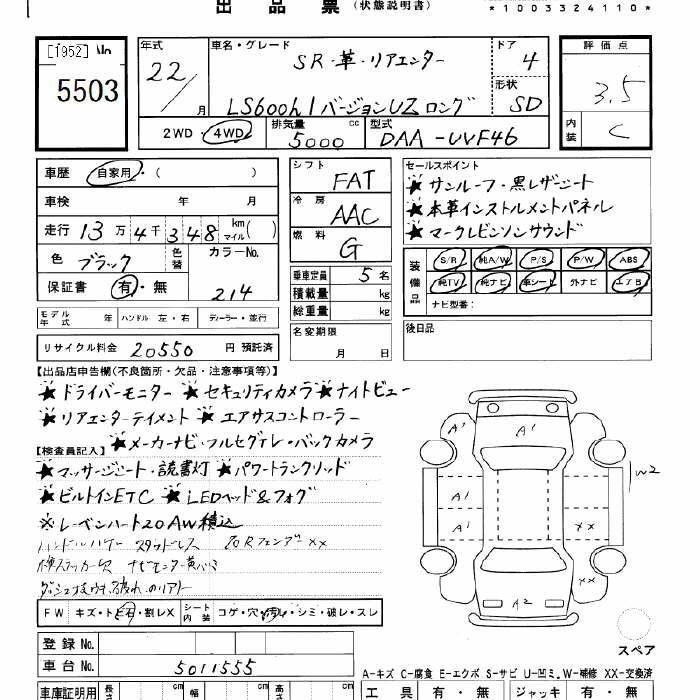 出品票 (状態説明書)
*1003324110*
[1952] No
5503
年式 22/ 月
車名・グレード SR・革・リアエンター
LS600hl バージョンUZ ロング
ドア 4
形状 SD
評価点 3.5
内装 C
2WD ・ 4WD
排気量 5000 cc
型式 DAA-UVF46
車歴 自家用・( )
車検 年 月
走行 13万4千348 km マイル( )
色 ブラック 色替
カラーNo. 214
保証書 有・無
シフト FAT
冷房 AAC
燃料 G
乗車定員 5名
積載量 kg
総重量 kg
セールスポイント
★サンルーフ・黒レザーシート
★本革インストルメントパネル
★マークレビンソンサウンド
装備品 S/R 純A/W P/S P/W ABS
純TV 純ナビ 車シート 外ナビ エアB
ナビ型番:
モデル年式 年 ハンドル 左・右 ディーラー・並行
名変期限 月 日
後日品
リサイクル料金 20550 円 預託済
【出品店申告欄(不良箇所・欠品・注意事項等)】
★ドライバーモニター ★セキュリティカメラ ★ナイトビュー
★リアエンターテイメント ★エアサスコントローラー
★メーカーナビ・フルセグテレ・バックカメラ
【検査員記入】
★マッサージシート・読書灯 ★パワートランクリッド
★ビルトインETC ★LEDヘッド&フォグ
※レーベンハート20AW積込
A1
A1
A1
A1
A2
XX
XX
W2
FW キズ・ト 石・割レX
シート内装 コゲ・穴・汚レ・シミ・破レ・スレ
登録No.
車台No. 5011555
スペア
A-キズ C-腐食 E-エクボ S-サビ U-凹ミ W-補修 XX-交換済
車庫証明用 長さ cm 幅 cm cm
工具 有・無 ジャッキ 有・無